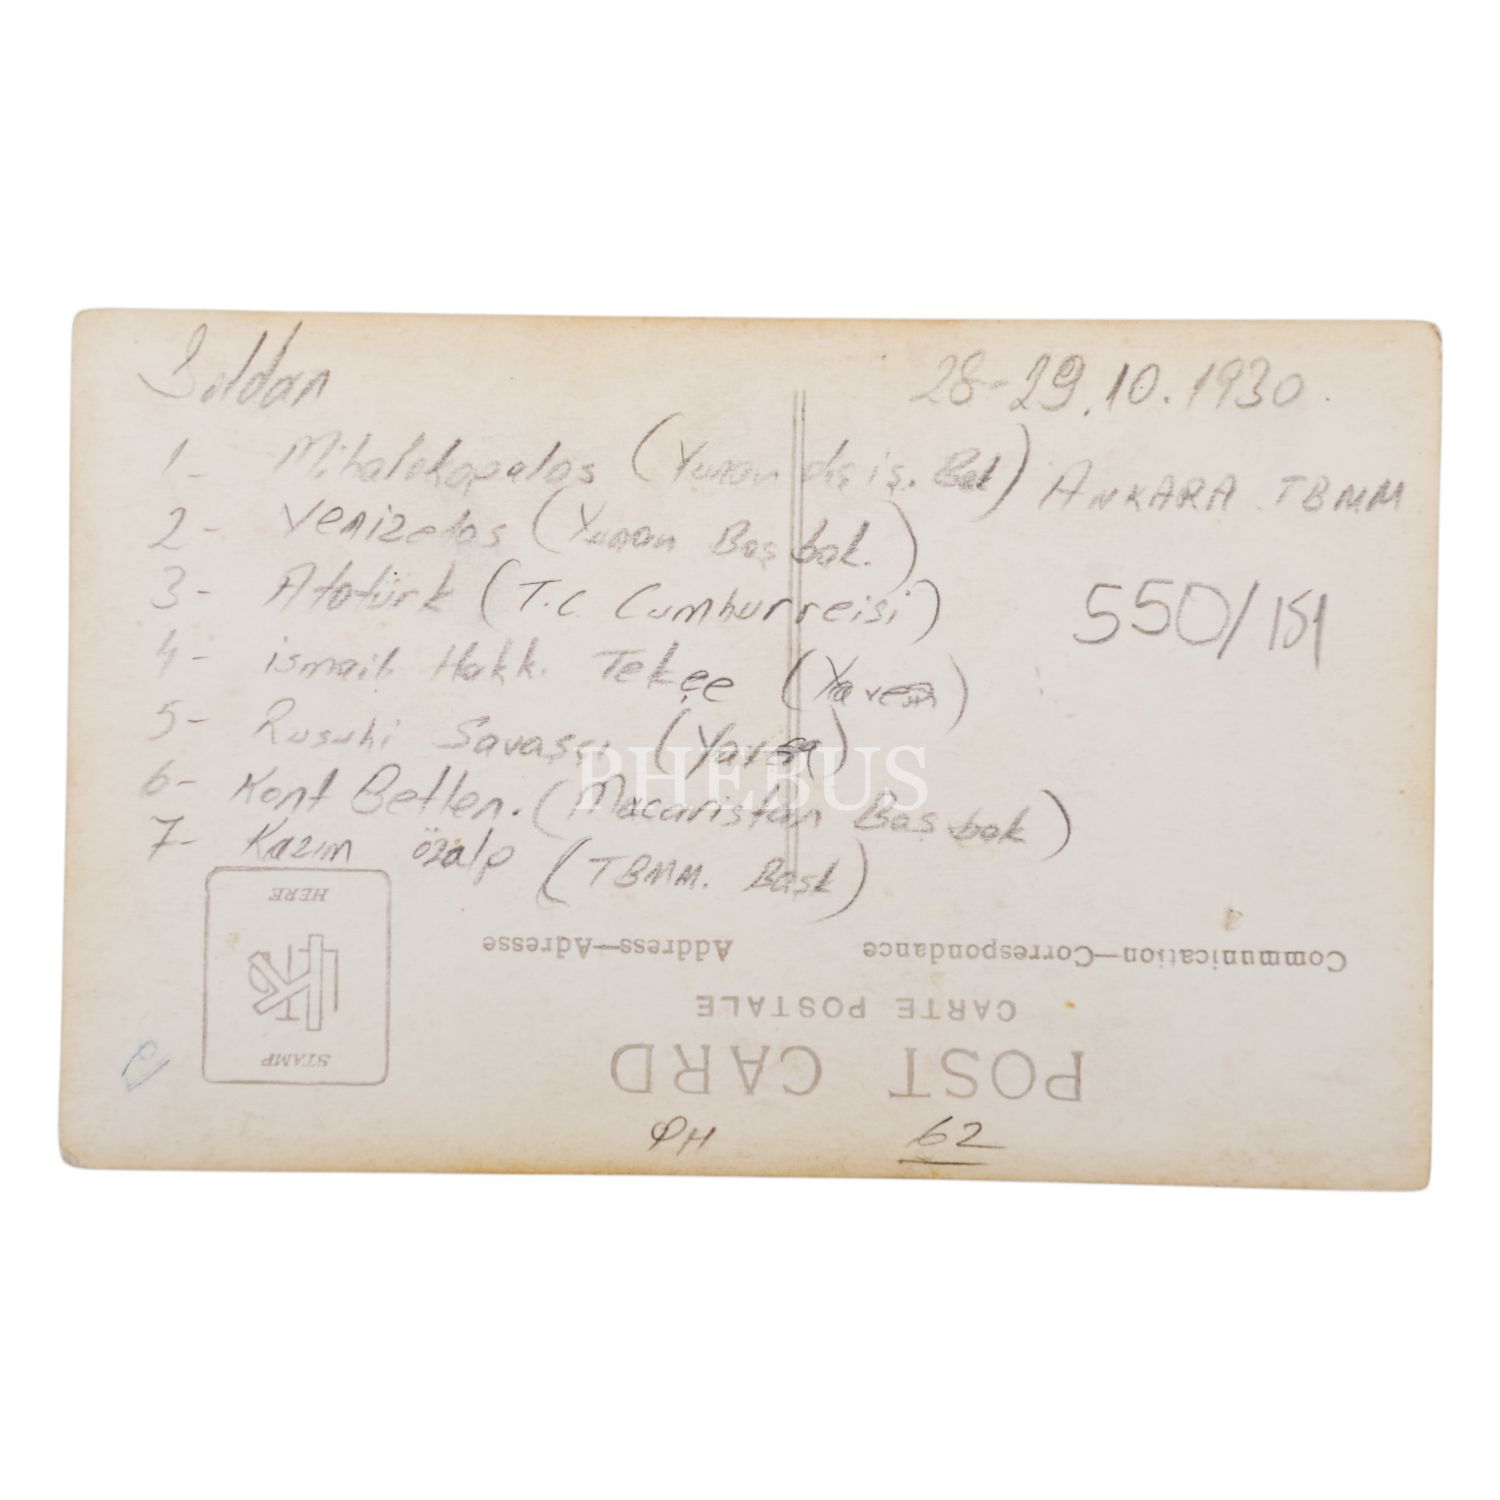 Soldan
28-29.10.1930.
1- Mihalokopolos (Yunan dış iş. Bak) ANKARA TBMM
2- Venizelos (Yunan Baş bak.)
3- Atatürk (T.C Cumhurreisi)
550/151
4- ismail Hakk. Tekçe (Yaver)
5- Rusuhi Savaşçı (Yaver)
PHEBUS
6- Kont Betlen. (Macaristan Baş bak)
7- Kazım özalp (TBMM. Başk)
STAMP
HERE
Communication—Correspondance
Address—Adresse
CARTE POSTALE
POST CARD
62